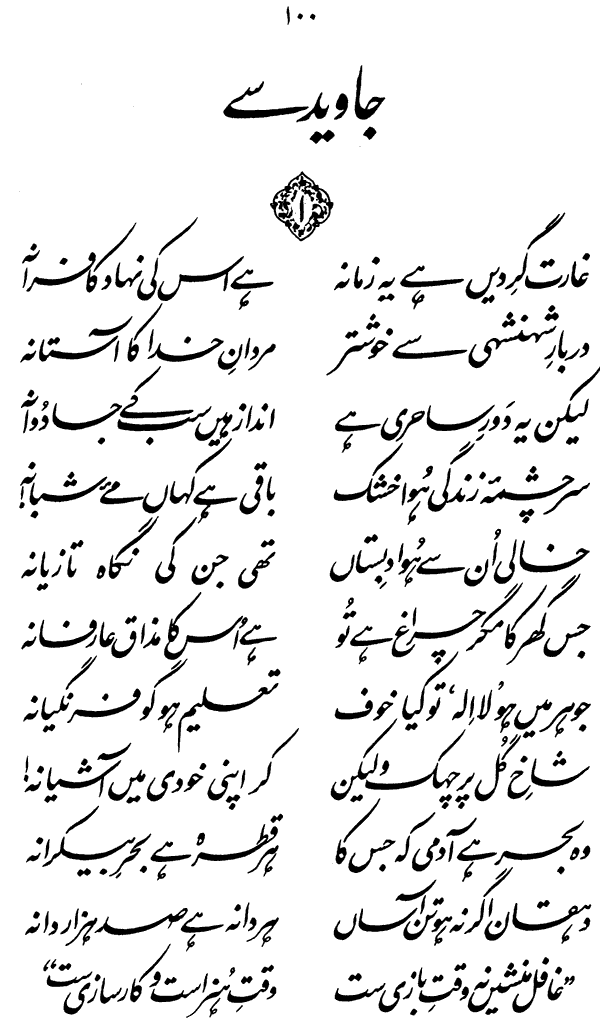 ۱۰۰
جاوید سے
۱
غارت گرِ دیں ہے یہ زمانہ ہے اس کی نہاد کافرانہ
دربارِ شہنشہی سے خوشتر مردانِ خدا کا آستانہ
لیکن یہ دَورِ ساحری ہے انداز ہیں سب کے جادُوانہ
سرچشمۂ زندگی ہُوا خشک باقی ہے کہاں مئے شبانہ!
خالی اُن سے ہُوا دبِستاں تھی جن کی نگاہ تازیانہ
جس گھر کا مگر چراغ ہے تُو ہے اُس کا مذاق عارفانہ
جوہر میں ہو ’لااِلہ‘ تو کیا خوف تعلیم ہو گو فرنگیانہ
شاخِ گُل پر چہک ولیکن کر اپنی خودی میں آشیانہ!
وہ بحر ہے آدمی کہ جس کا ہر قطرہ ہے بحرِ بیکرانہ
دہقان اگر نہ ہو تن آساں ہر دانہ ہے صد ہزار دانہ
”غافل منشیں نہ وقتِ بازی ست وقتِ ہُنر است و کارسازی ست“